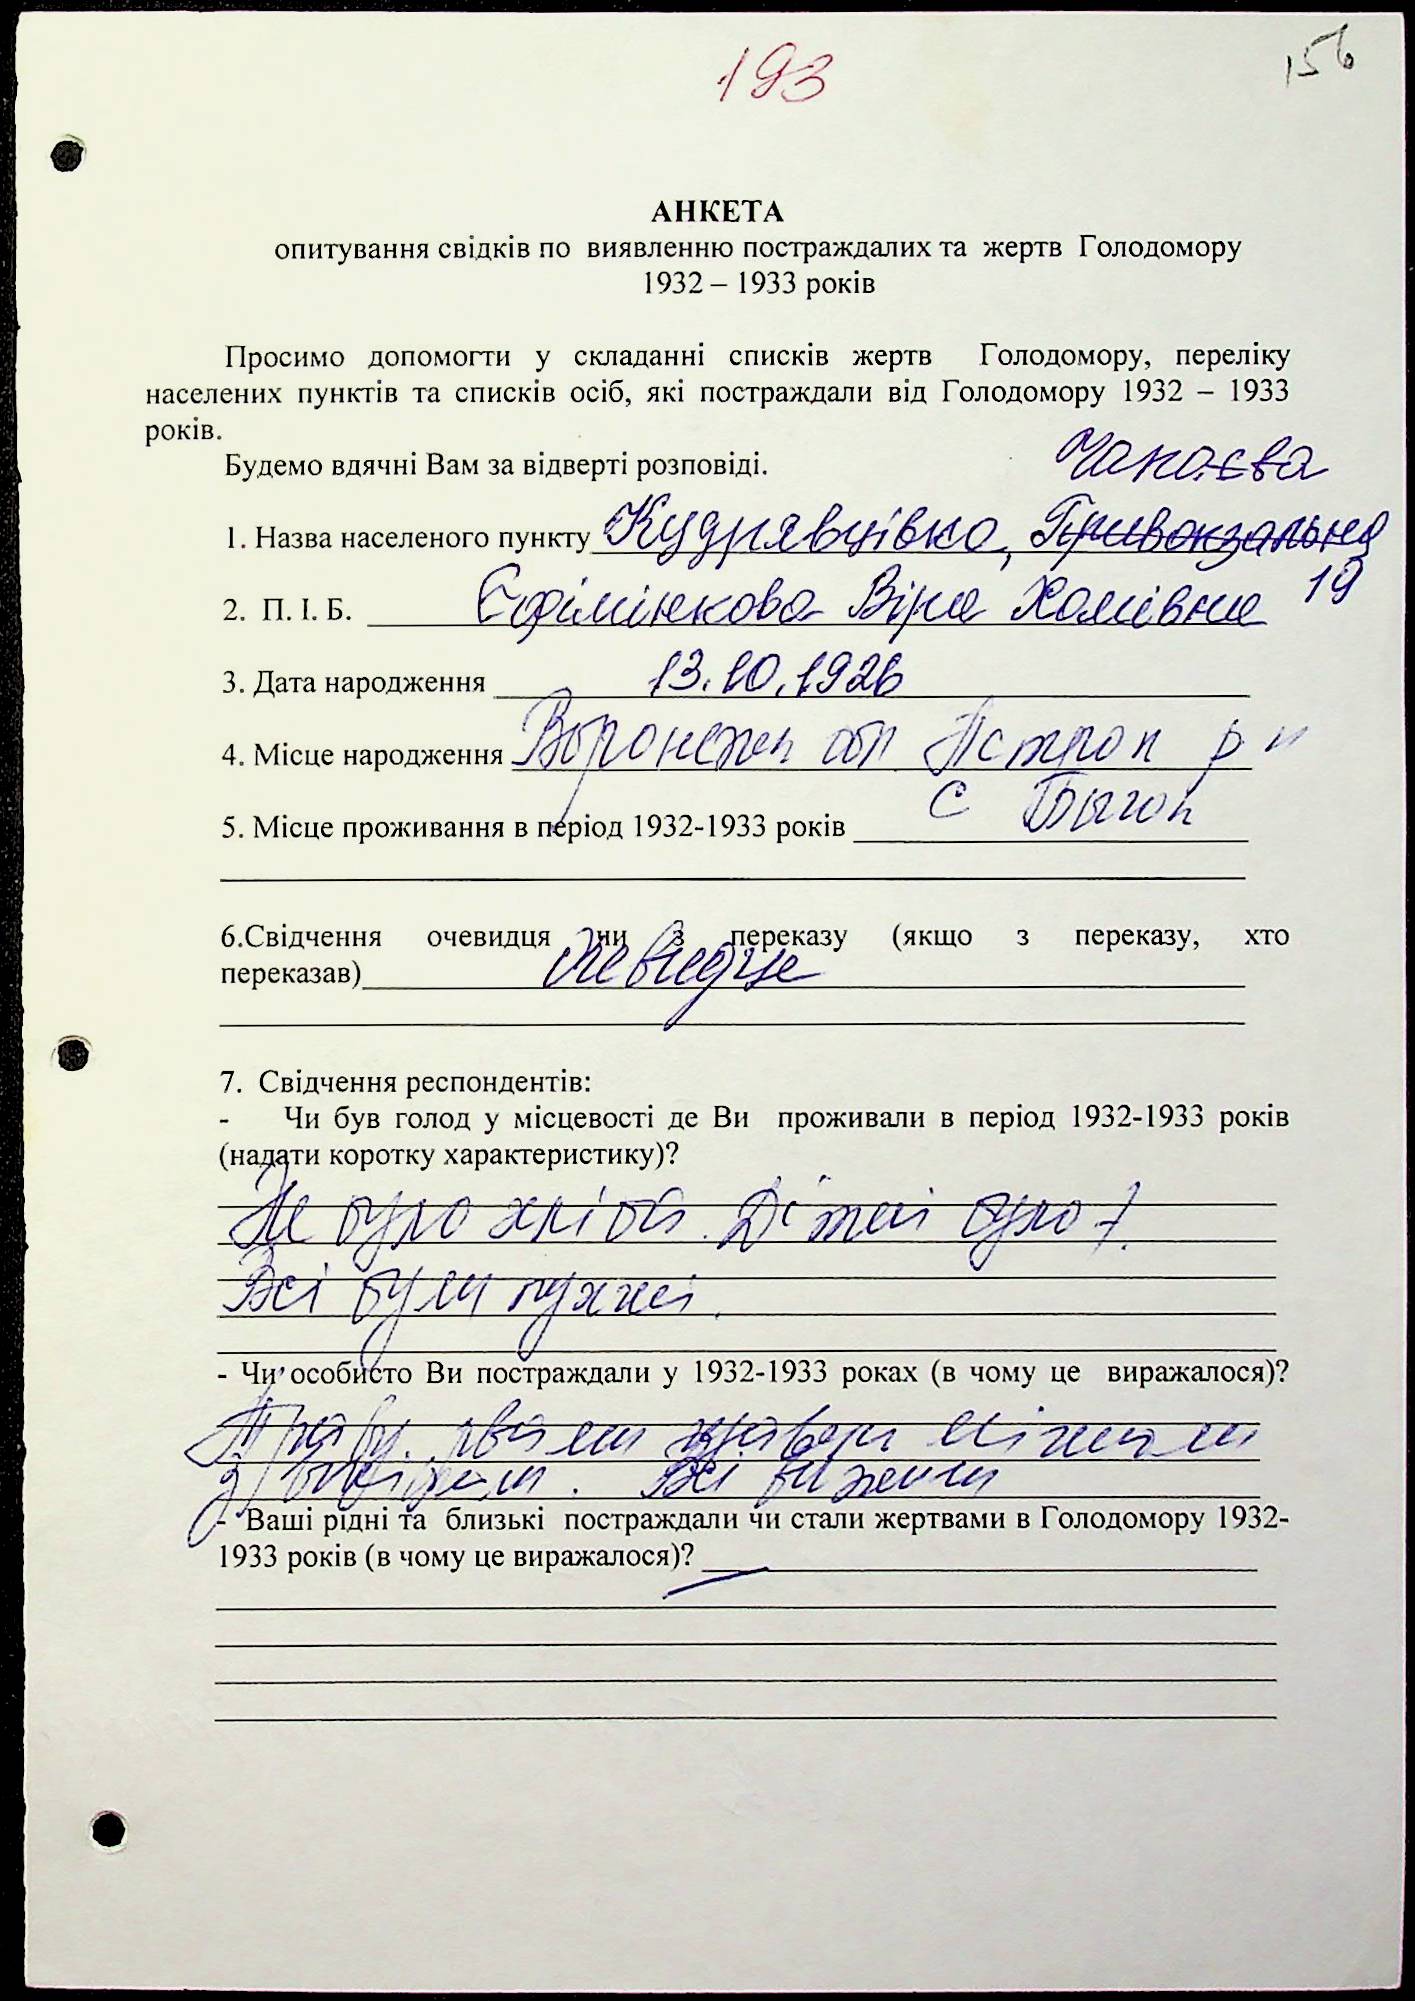 193
156
АНКЕТА
опитування свідків по виявленню постраждалих та жертв Голодомору
1932 – 1933 років
Просимо допомогти у складанні списків жертв Голодомору, переліку
населених пунктів та списків осіб, які постраждали від Голодомору 1932 – 1933
років.
Будемо вдячні Вам за відверті розповіді.
Чапаєва
1. Назва населеного пункту Кудрявцівка, Привокзальна
19
2. П. І. Б. Єфімінкова Віра Хомівна
3. Дата народження 13.10.1926
4. Місце народження Воронежск обл р н
5. Місце проживання в період 1932-1933 років с
6.Свідчення очевидця чи з переказу (якщо з переказу, хто
переказав) очевидце
7. Свідчення респондентів:
- Чи був голод у місцевості де Ви проживали в період 1932-1933 років
(надати коротку характеристику)?
Не було хліба. Дітей було 7.
Всі були пухлі.
- Чи особисто Ви постраждали у 1932-1933 роках (в чому це виражалося)?
Траву рвали мішали
з Всі вижили
- Ваші рідні та близькі постраждали чи стали жертвами в Голодомору 1932-
1933 років (в чому це виражалося)?